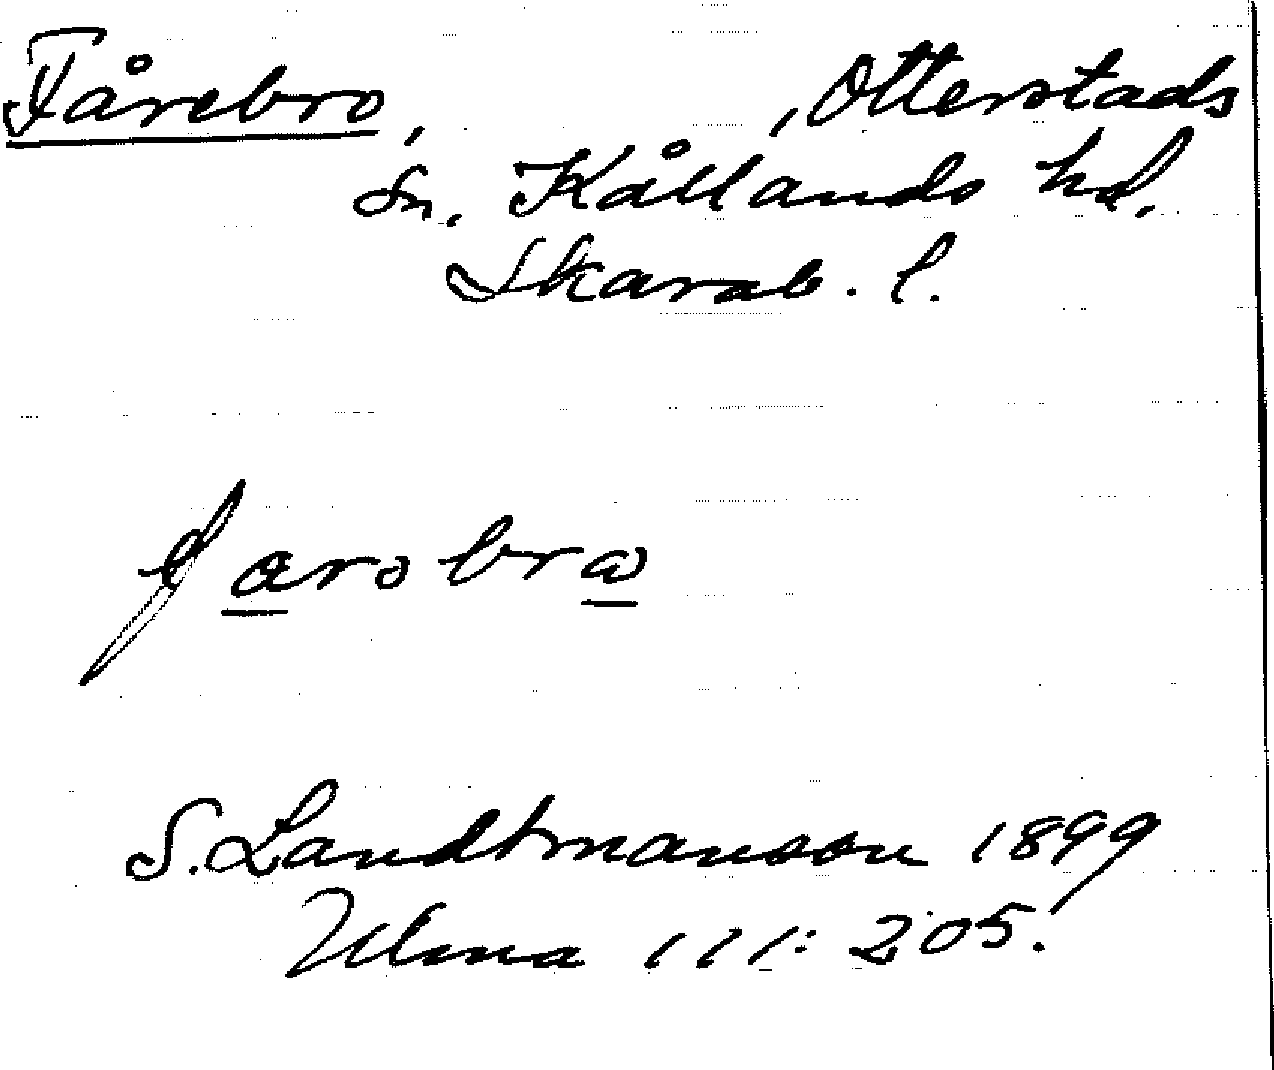 Fårebro, , Otterstads
sn. Kållands hd.
Skarab. l.
farobra
S. Landtmanson 1899
Ulma 111: 205.